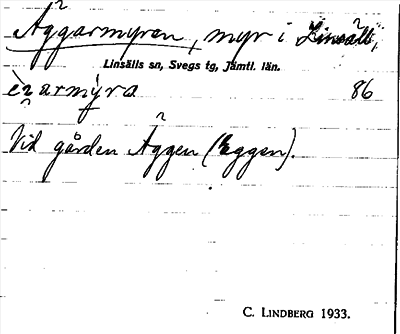 Äggarmyren, myr i Linsäll,
Linsälls sn, Svegs tg, Jämtl. län.
86
Vid gården Äggen (Eggen).
C. LINDBERG 1933.